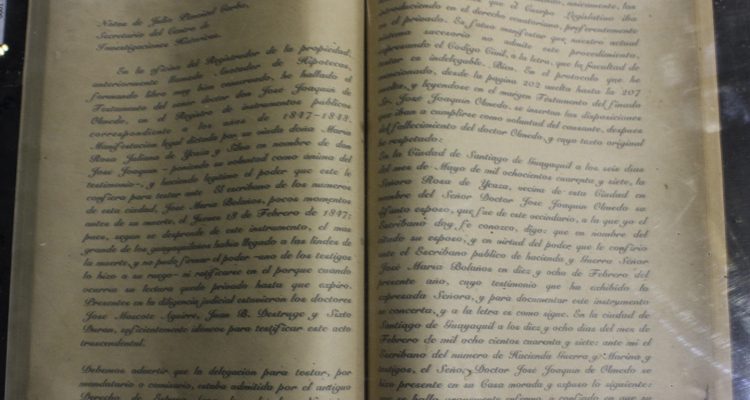 Notas de Julio Pimentel Carbo,
Secretario del Centro de
Investigaciones Históricas.
En la oficina del Registrador de la propiedad,
anteriormente llamado Anotador de Hipotecas,
formando libro muy bien conservado, he hallado el
Testamento del señor doctor don José Joaquin de
Olmedo, en el Registro de instrumentos públicos
correspondiente a los años de 1847-1848.
Manifestación legal dictada por su viuda doña Maria
Rosa Juliana de Ycaza y Silva en nombre de don
José Joaquin - poniendo su voluntad como ánima del
testimonio-, y haciendo legítimo el poder que este le
confiera para testar ante El escribano de los números
de esta ciudad, José Maria Bolaños, pocos momentos
antes de su muerte, el Jueves 18 de Febrero de 1847;
pues, según se desprende de este instrumento, el mas
grande de los guayaquileños había llegado a las lindes de
la muerte, y no pudo firmar el poder -uno de los testigos
lo hizo a su ruego- ni ratificarse en el porque cuando
ocurria su lectura quedo privado hasta que expiro.
Presentes en la diligencia judicial estuvieron los doctores
José Mascote Aguirre, Juan B. Destruge y Sixto
Duran, suficientemente idoneos para testificar este acto
trascendental.
Debemos advertir que la delegación para testar, por
mandatario o comisario, estaba admitida por el antiguo
Derecho de España
unicamente, las
que el Cuerpo Legislativo iba
introduciendo en el derecho ecuatoriano, preferentemente
en el privado. Es fatuo manifestar que nuestro actual
sistema sucesorio no admite este procedimiento,
expresando el Código Civil, a la letra, que la facultad de
testar es indelegable. Bien. En el protocolo que he
mencionado, desde la página 202 vuelta hasta la 207
vuelta, y leyendose en el margen Testamento del finado
Sr. José Joaquin Olmedo, se insertan las disposiciones
que iban a cumplirse como voluntad del causante, despues
del fallecimiento del doctor Olmedo, y cuyo texto original
he respetado:
En la Ciudad de Santiago de Guayaquil a los seis dias
del mes de Mayo de mil ochocientos cuarenta y siete, la
Señora Rosa de Ycaza, vecina de esta Ciudad en
nombre del Señor Doctor José Joaquin Olmedo su
difunto esposo, que fue de este vecindario, a la que yo el
Escribano doy fe conozco, digo: que en nombre del
citado su esposo, y en virtud del poder, que le confirio
ante el Escribano publico de hacienda y Guerra Señor
José Maria Bolaños en diez y ocho de Febrero del
presente año, cuyo testimonio que ha exhibido la
expresada Señora, y para documentar este instrumento
se concerta, y a la letra es como sigue. En la ciudad de
Santiago de Guayaquil a los diez y ocho dias del mes de
Febrero de mil ocho cientos cuarenta y siete: ante mi el
Escribano del numero de Hacienda Guerra y Marina y
testigos, el Señor Doctor José Joaquin de Olmedo se
hizo presente en su Casa morada y expuso lo siguiente:
que se halla gravemente enfermo, a confiado en que su